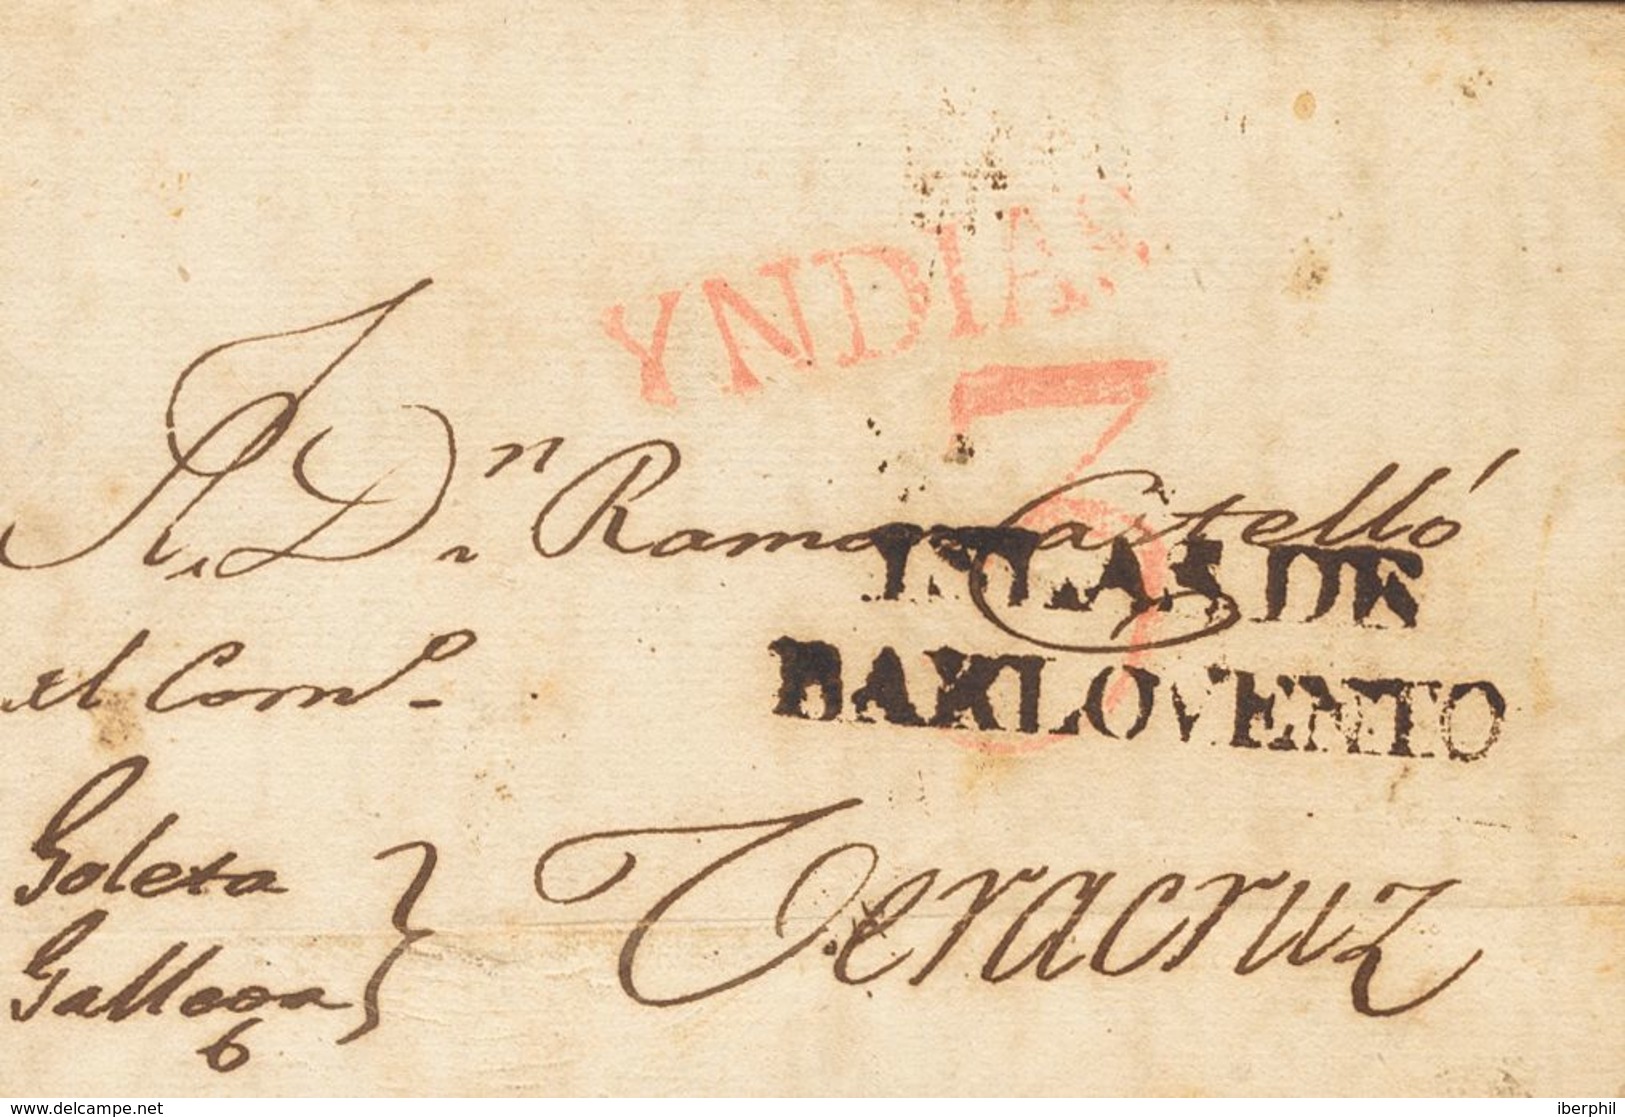 YNDIAS
3
A. Dn. Ramon Castelló
ISLAS DE
BARLOVENTO
el Com.o
Goleta
Veracruz
6
www.delcampe.net
iberphil